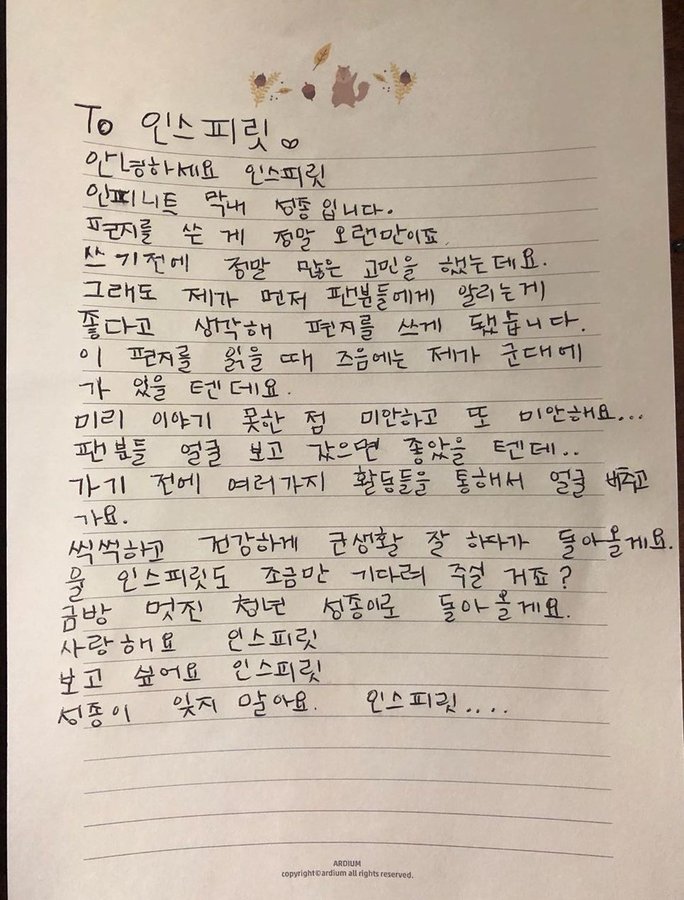 To 인스피릿
안녕하세요 인스피릿
인피니트 막내 성종입니다.
편지를 쓴 게 정말 오랜만이죠.
쓰기전에 정말 많은 고민을 했는데요.
그래도 제가 먼저 팬분들에게 알리는게
좋다고 생각해 편지를 쓰게 됐습니다.
이 편지를 읽을 때 즈음에는 제가 군대에
가 있을 텐데요.
미리 이야기 못한 점 미안하고 또 미안해요...
팬분들 얼굴 보고 갔으면 좋았을 텐데..
가기 전에 여러가지 활동들을 통해서 얼굴 비추고
가요.
씩씩하고 건강하게 군생활 잘 하다가 돌아올게요.
울 인스피릿도 조금만 기다려 주실 거죠?
금방 멋진 청년 성종이로 돌아올게요.
사랑해요 인스피릿
보고 싶어요 인스피릿
성종이 잊지 말아요. 인스피릿....
ARDIUM
copyright©ardium all rights reserved.